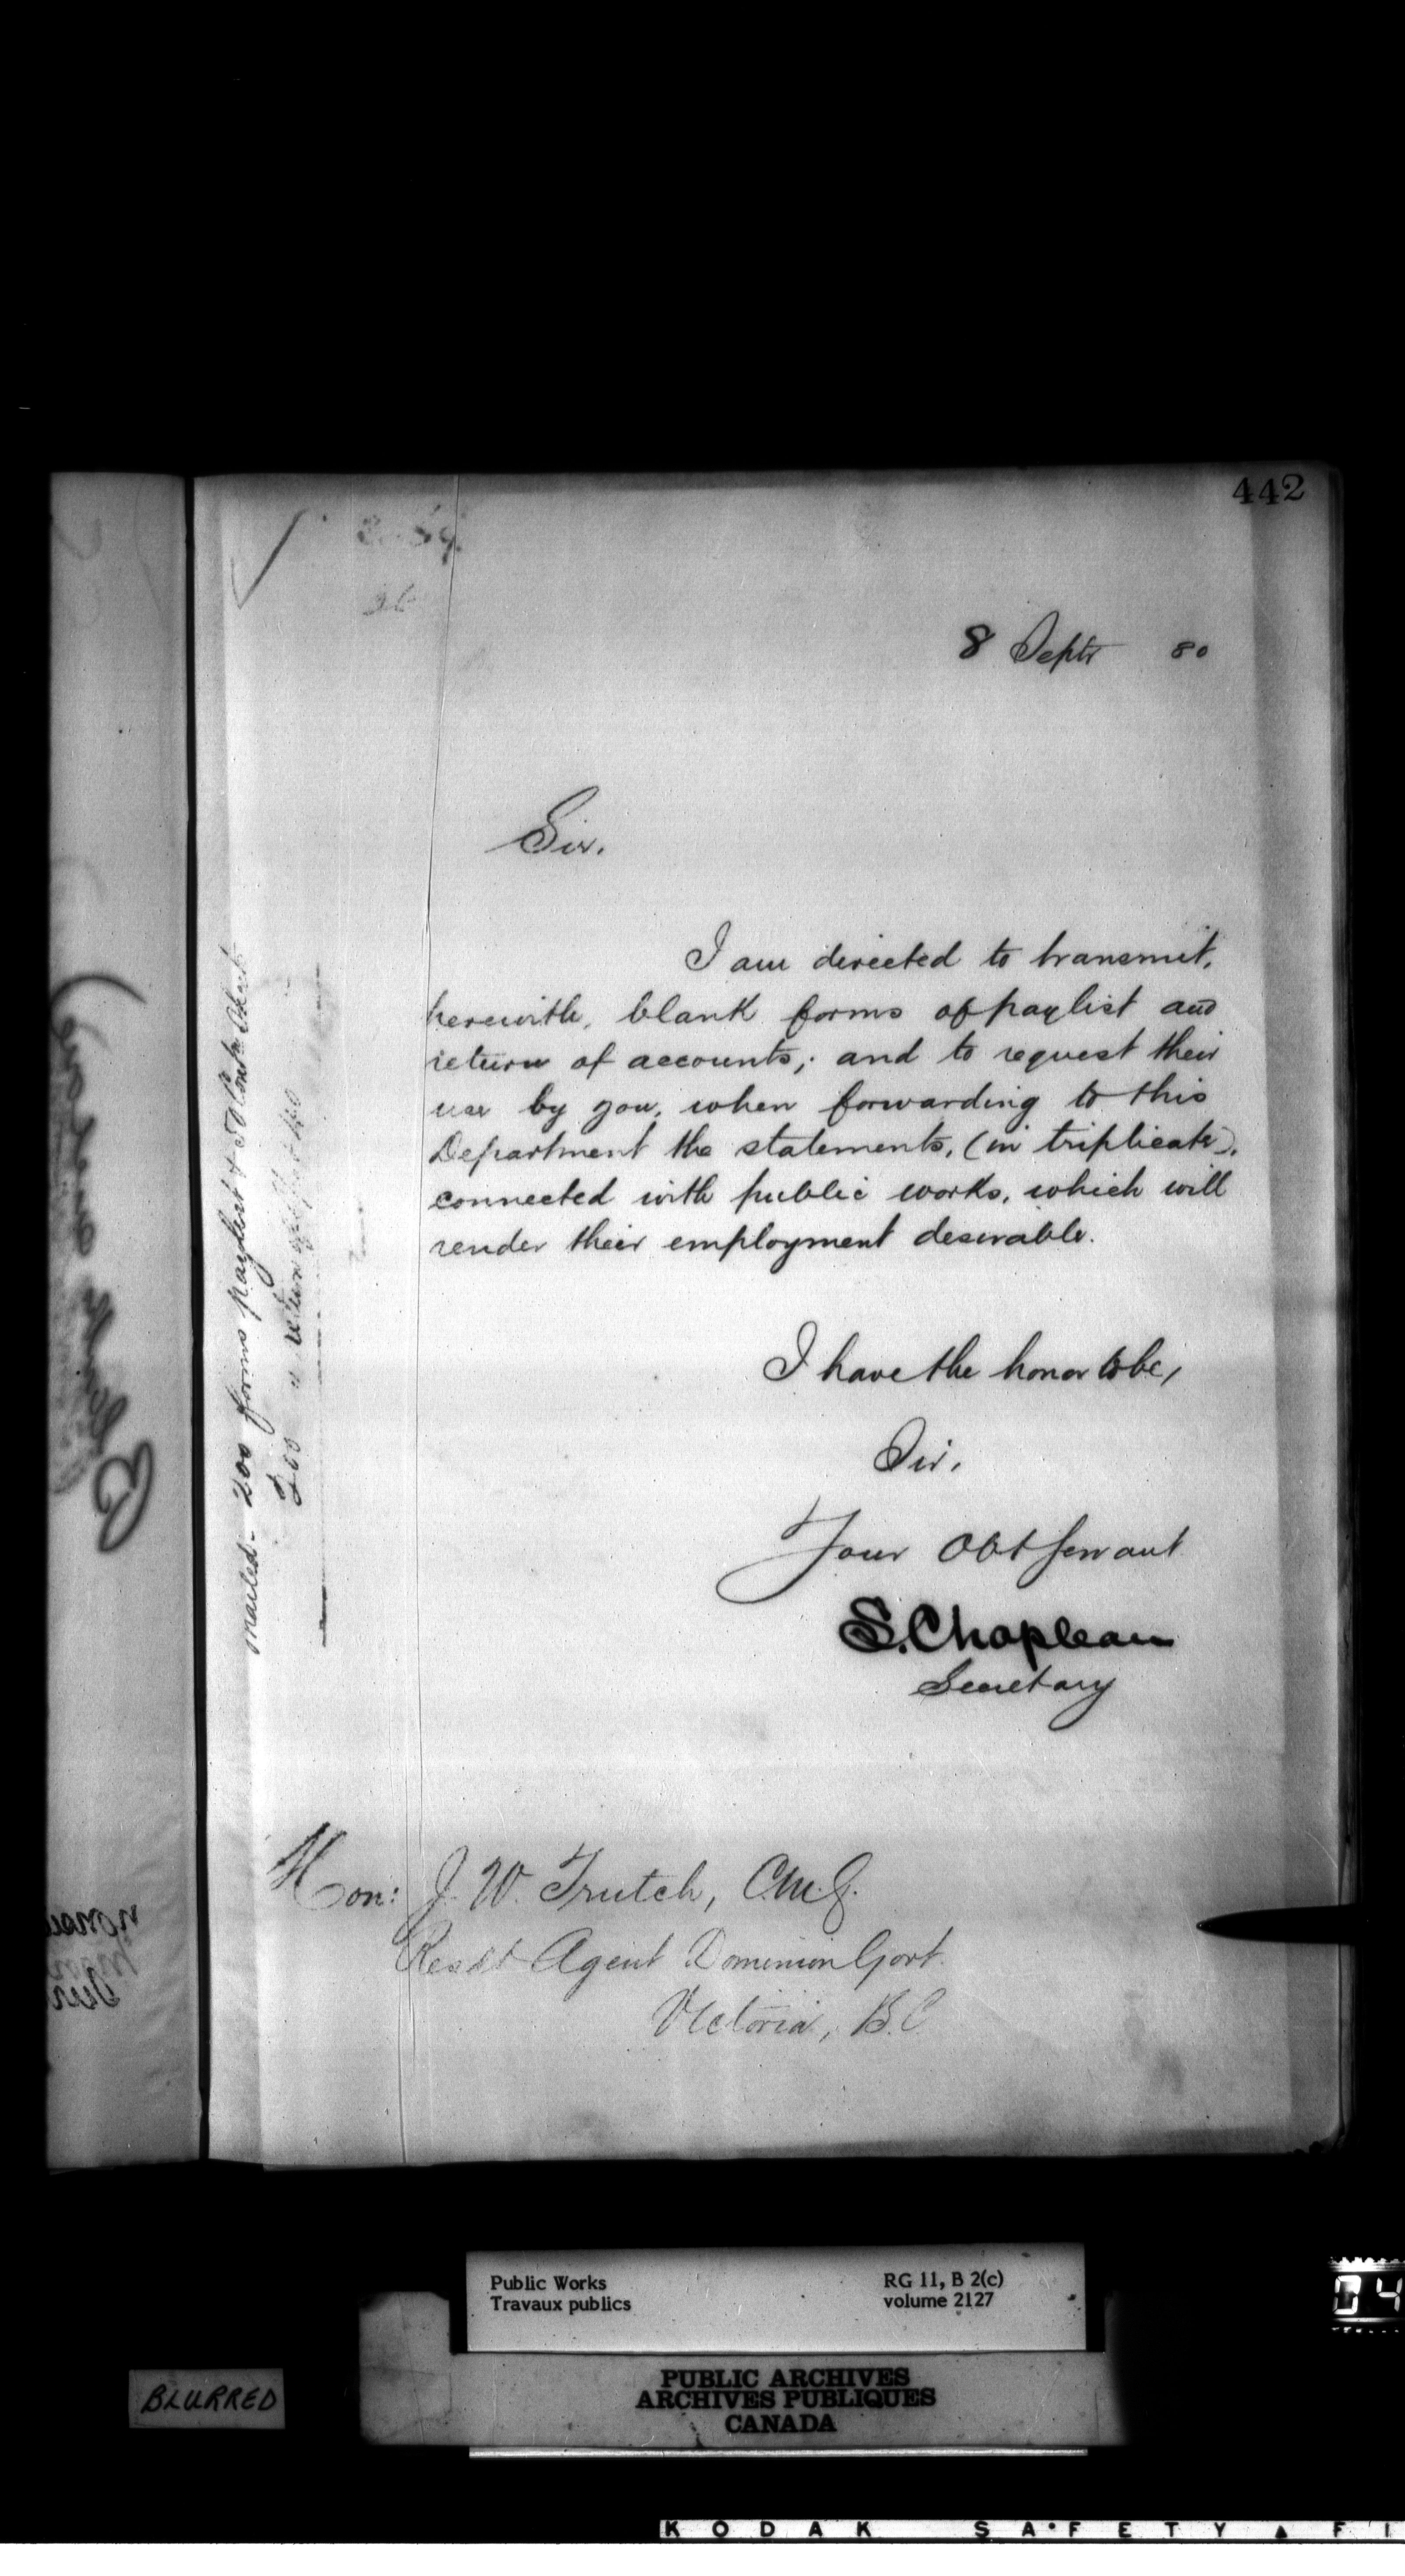 442
8 Septr 80
Sir.
I am directed to transmit,
herewith, blank forms of paylist and
return of accounts; and to request their
use by you, when forwarding to this
Department the statements, (in triplicate),
connected with public works, which will
render their employment desirable.
I have the honor to be,
Sir,
Your Obt Servant
S. Chapleau
Secretary
Hon: J. W. Trutch, C.M.G.
Resdt Agent Dominion Govt.
Victoria, B.C
mailed - 200 forms paylist & 50
200 " return
Public Works
Travaux publics
RG 11, B 2(c)
volume 2127
PUBLIC ARCHIVES
ARCHIVES PUBLIQUES
CANADA
BLURRED
04
KODAK SAFETY FI